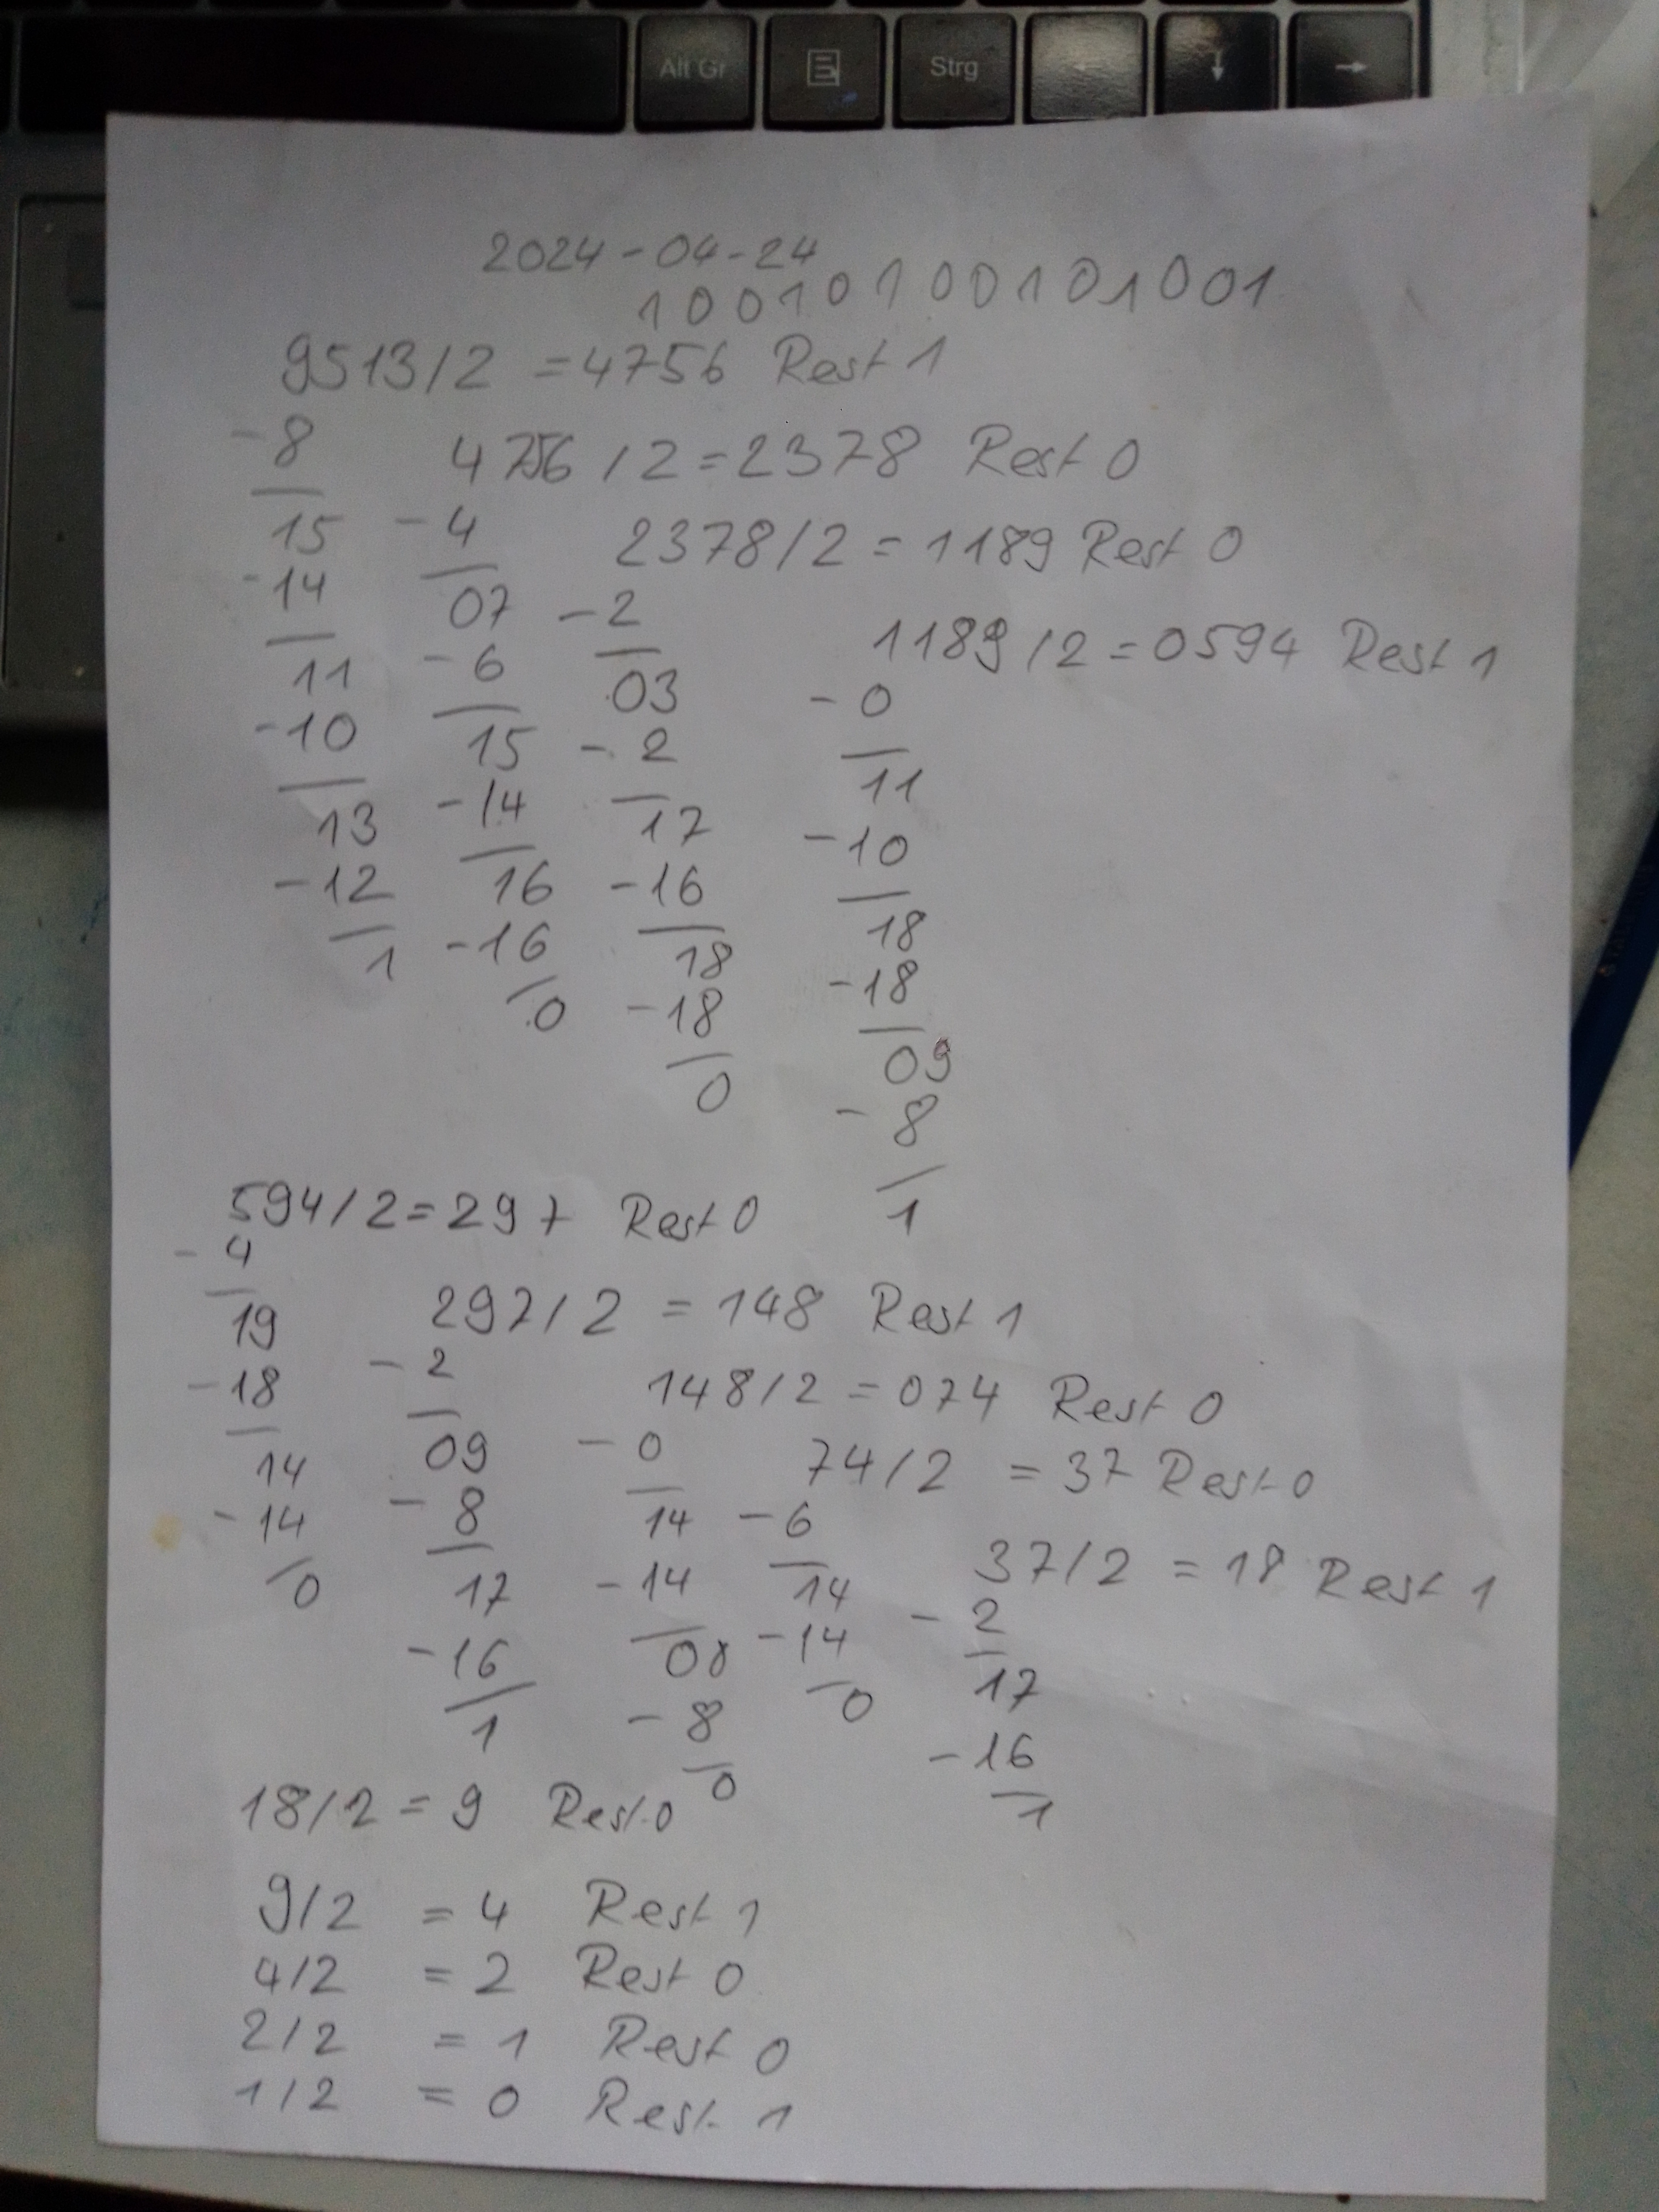 Alt Gr Strg ← ↓ →
2024-04-24
10010100101001
9513/2 = 4756 Rest 1
-8
15
-14
11
-10
13
-12
1
4756/2 = 2378 Rest 0
-4
07
-6
15
-14
16
-16
0
2378/2 = 1189 Rest 0
-2
03
-2
17
-16
18
-18
0
1189/2 = 0594 Rest 1
-0
11
-10
18
-18
09
-8
1
594/2 = 297 Rest 0
-4
19
-18
14
-14
0
297/2 = 148 Rest 1
-2
09
-8
17
-16
1
148/2 = 074 Rest 0
-0
14
-14
08
-8
0
74/2 = 37 Rest 0
-6
14
-14
0
37/2 = 18 Rest 1
-2
17
-16
1
18/2 = 9 Rest 0
9/2 = 4 Rest 1
4/2 = 2 Rest 0
2/2 = 1 Rest 0
1/2 = 0 Rest 1